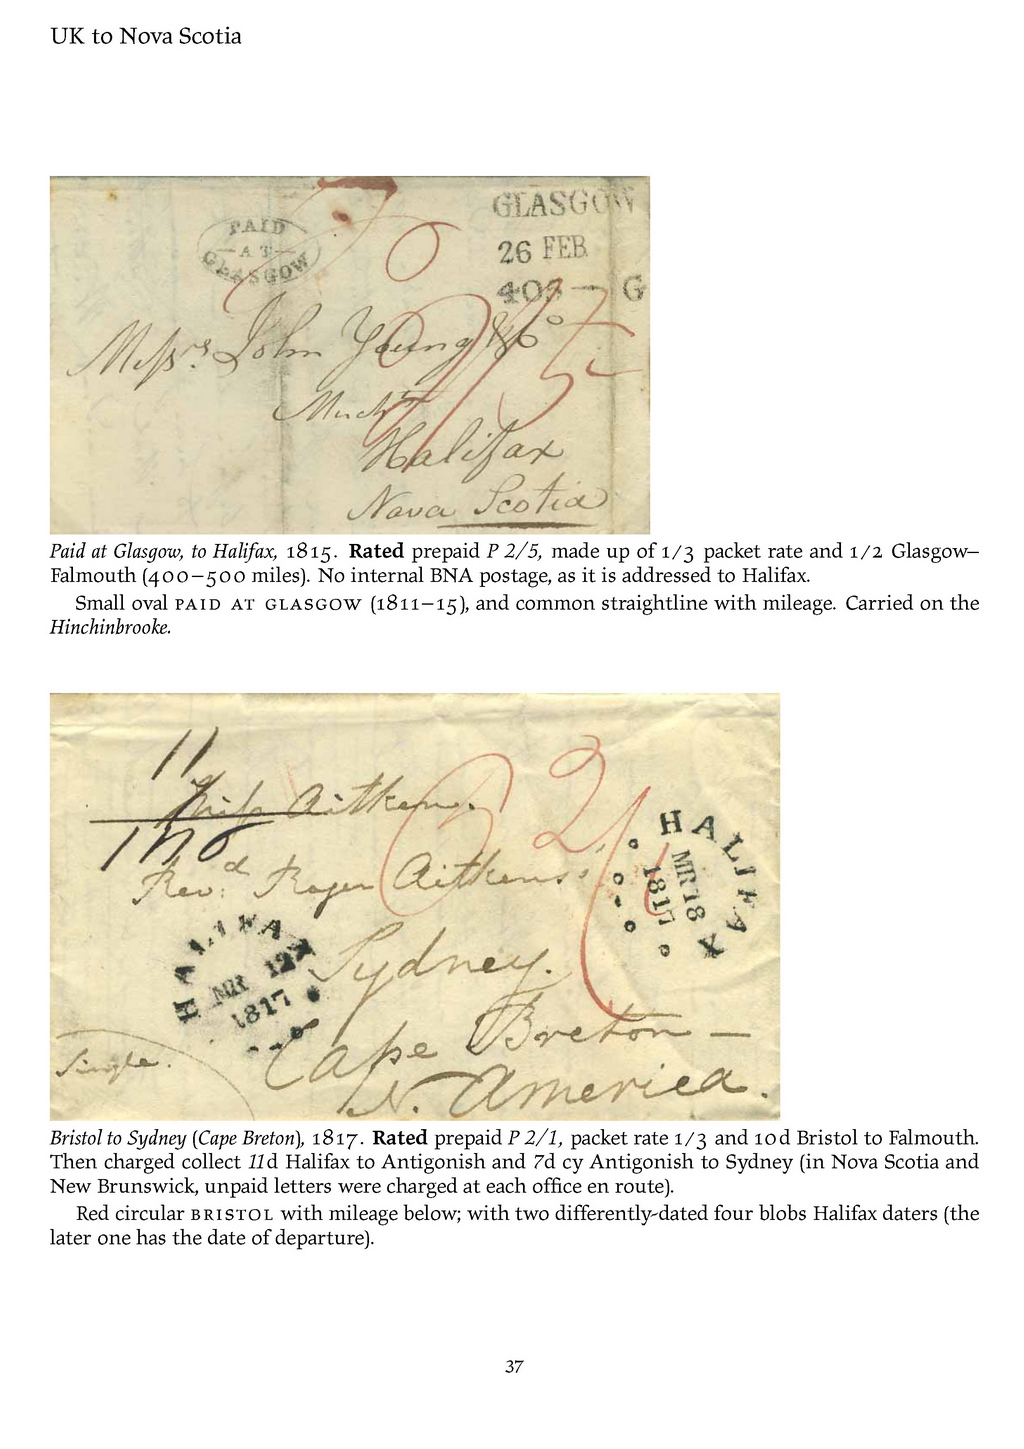 UK to Nova Scotia
PAID
AT
GLASGOW
6
GLASGOW
26 FEB
403 — G
P 2/5
Messrs. John Young & Co
Mercht
Halifax
Nova Scotia
Paid at Glasgow, to Halifax, 1815. Rated prepaid P 2/5, made up of 1/3 packet rate and 1/2 Glasgow–
Falmouth (400–500 miles). No internal BNA postage, as it is addressed to Halifax.
Small oval PAID AT GLASGOW (1811–15), and common straightline with mileage. Carried on the
Hinchinbrooke.
11
Miss Aitken.
Revd: Roger Aitkens
P 2/1
HALIFAX
MR 18
1817
HALIFAX
MR 12
1817
Sydney.
Single.
Cape Breton —
N. America.
Bristol to Sydney (Cape Breton), 1817. Rated prepaid P 2/1, packet rate 1/3 and 10d Bristol to Falmouth.
Then charged collect 11d Halifax to Antigonish and 7d cy Antigonish to Sydney (in Nova Scotia and
New Brunswick, unpaid letters were charged at each office en route).
Red circular BRISTOL with mileage below; with two differently-dated four blobs Halifax daters (the
later one has the date of departure).
37